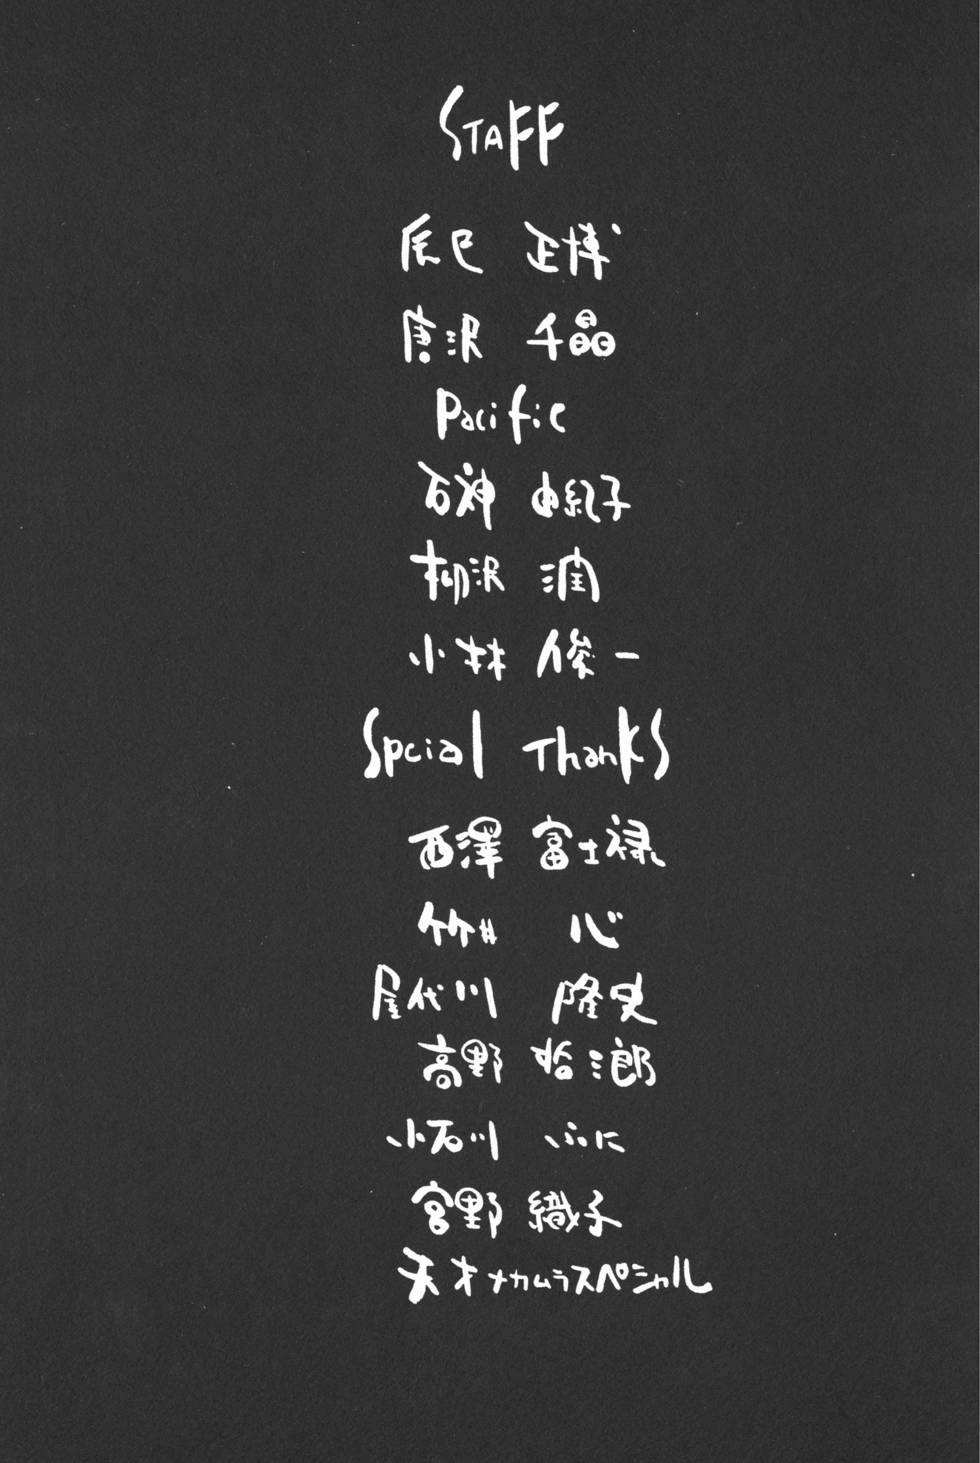 STAFF
辰巳 正博
唐沢 千晶
Pacific
石神 由紀子
柳沢 潤
小林 俊一
Spcial Thanks
西澤 富士禄
竹井 心
屋代川 隆史
高野 哲三郎
小石川 ふに
宮野 織子
天才ナカムラスペシャル